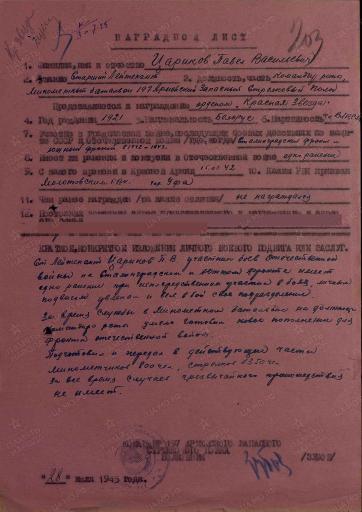 203
НАГРАДНОЙ ЛИСТ
1. Фамилия, имя и отчество Цариков Павел Васильевич
2. Звание Старший Лейтенант 3. Должность, часть Командир роты,
Минометный батальон 197 Армейский Запасный Стрелковый Полк
Представляется к награждению орденом „Красная Звезда“
4. Год рождения 1921 5. Национальность Белорус 6. Партийность
7. Участие в гражданской войне, последующих боевых действиях по защите
СССР и отечественной войне /где, когда/ Сталинградский фронт
фронт 1942
8. Имеет ли ранения и контузии в Отечественной войне одно ранение
9. С какого времени в Красной Армии 42 10. Каким РВК призван
Молотовским РВК гор. Уфа
11. Чем ранее награжден /за какие отличия/ не награждался
12. Постоянный
КРАТКОЕ, КОНКРЕТНОЕ ИЗЛОЖЕНИЕ ЛИЧНОГО БОЕВОГО ПОДВИГА ИЛИ ЗАСЛУГ.
Ст Лейтенант Цариков П.В. участник боев отечественной
войны на Сталинградском и фронтах имеет
одно ранение при непосредственном участии в боях, личным
подвигом увлекал в бой свое подразделение.
За время службы в минометном батальоне на должности
командира роты умело готовит новое пополнение для
фронта отечественной войны.
Подготовил и передал в действующие части
минометчиков 800 чел, стрелков 350 чел.
За все время случаев чрезвычайного происшествия
не имеет.
КОМАНДИР 197 АРМЕЙСКОГО ЗАПАСНОГО
СТРЕЛКОВОГО ПОЛКА
"28" июля 1945 года.